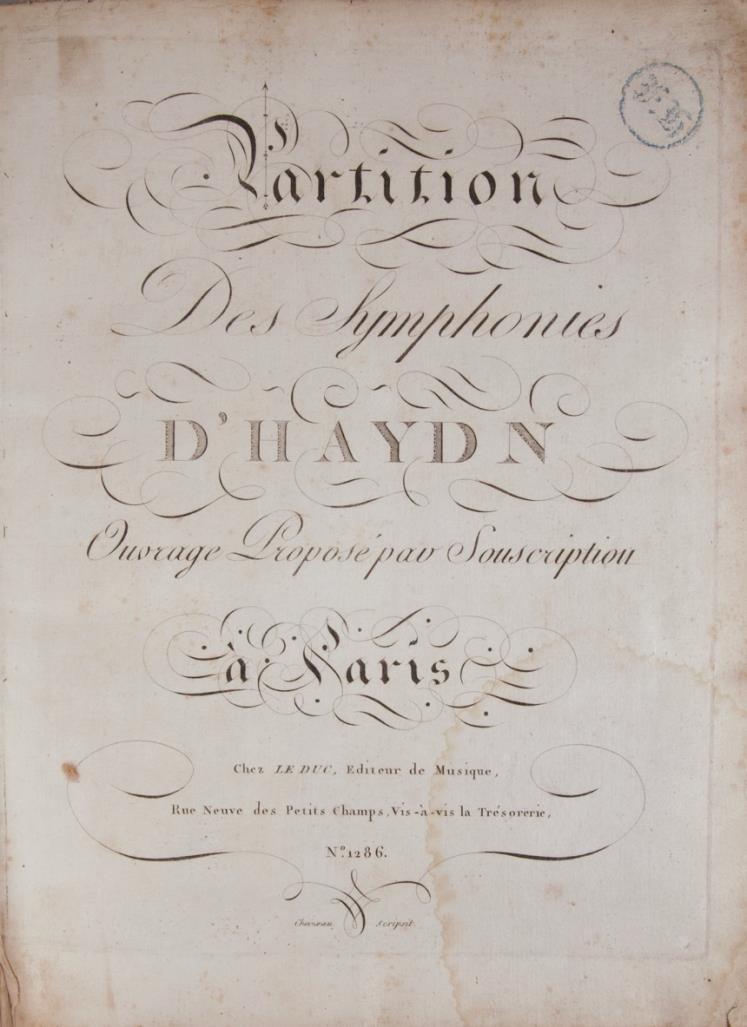 Partition
Des Symphonies
D'HAYDN
Ouvrage Proposé par Souscription
à Paris
Chez LE DUC, Editeur de Musique,
Rue Neuve des Petits Champs, Vis-à-vis la Trésorerie,
Nº. 1286.
Scripsit.